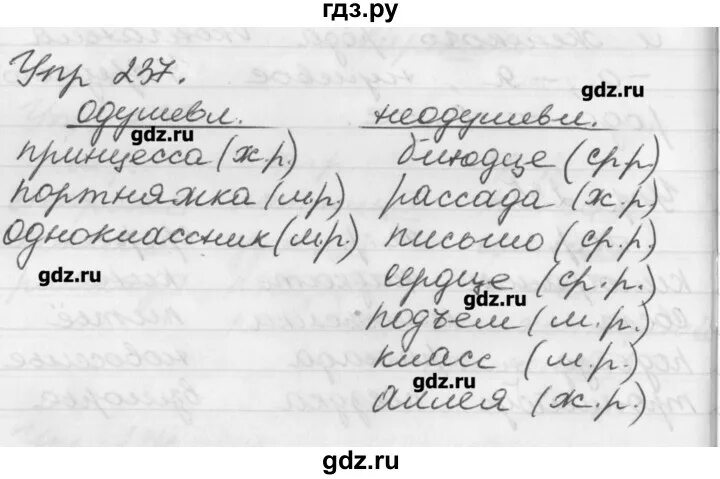 гдз.ру
Упр 237.
одушевл. неодушевл.
gdz.ru
gdz.ru
принцесса (ж.р.) блюдце (ср.р)
gdz.ru
портняжка (м.р) рассада (ж.р)
одноклассник (м.р.) письмо (ср.р.)
gdz.ru
сердце (ср.р.)
gdz.ru
подъем (м.р.)
класс (м.р.)
gdz.ru
аллея (ж.р.)
gdz.ru